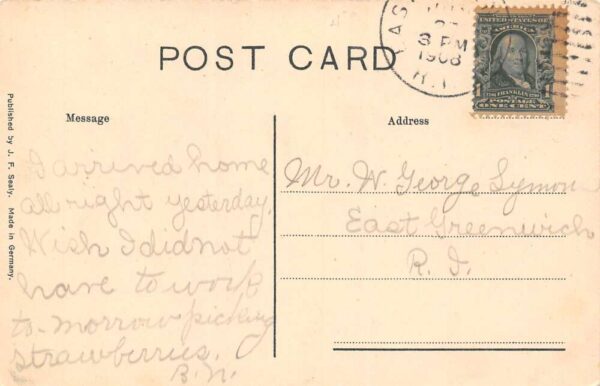 POST CARD
3 PM
1908
R.I.
UNITED STATES OF
AMERICA
FRANKLIN
POSTAGE
ONE CENT
Published by J. F. Sealy. Made in Germany.
Message
I arrived home
all right yesterday.
Wish I did not
have to work
to-morrow picking
strawberries.
B. N.
Address
Mr. W. George
East Greenwich
R. I.